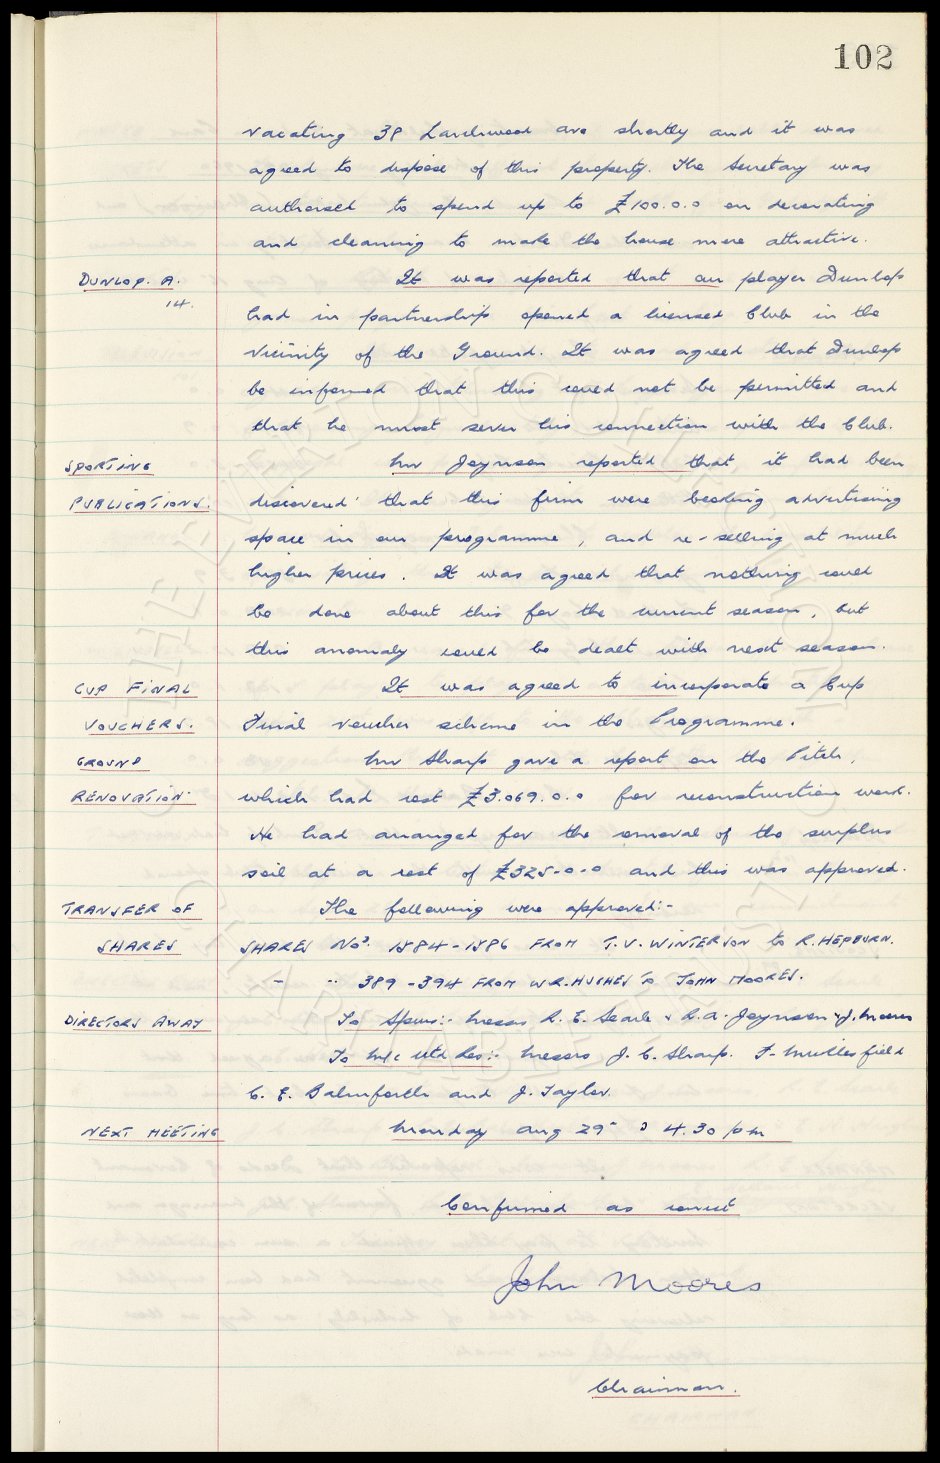 102
vacating 38 Larchwood ave shortly and it was
agreed to dispose of this property. The Secretary was
authorised to spend up to £100.0.0 on decorating
and cleaning to make the house more attractive.
DUNLOP. A. It was reported that our player Dunlop
14. had in partnership opened a licensed Club in the
vicinity of the Ground. It was agreed that Dunlop
be informed that this could not be permitted and
that he must sever his connection with the Club.
SPORTING Mr Joynson reported that it had been
PUBLICATIONS. discovered that this firm were booking advertising
space in our programme, and re-selling at much
higher prices. It was agreed that nothing could
be done about this for the current season, but
this anomaly could be dealt with next season.
CUP FINAL It was agreed to incorporate a Cup
VOUCHERS. Final voucher scheme in the Programme.
GROUND Mr Sharp gave a report on the Pitch,
RENOVATION which had cost £3.069.0.0 for reconstruction work.
He had arranged for the removal of the surplus
soil at a cost of £325-0-0 and this was approved.
TRANSFER OF The following were approved:-
SHARES SHARES Nos. 1584-1586 FROM T.V. WINTERSON to R. HEPBURN.
- -- 389-394 FROM W.R. HUGHES to JOHN MOORES.
DIRECTORS AWAY To Spurs:- Messrs R. E. Searle & R.A. Joynson & J. Moores
To M/c Utd Res:- Messrs J. C. Sharp. F. Micklesfield
C. E. Balmforth and J. Taylor.
NEXT MEETING Monday Aug 29th 4.30 pm
Confirmed as correct
John Moores
Chairman.